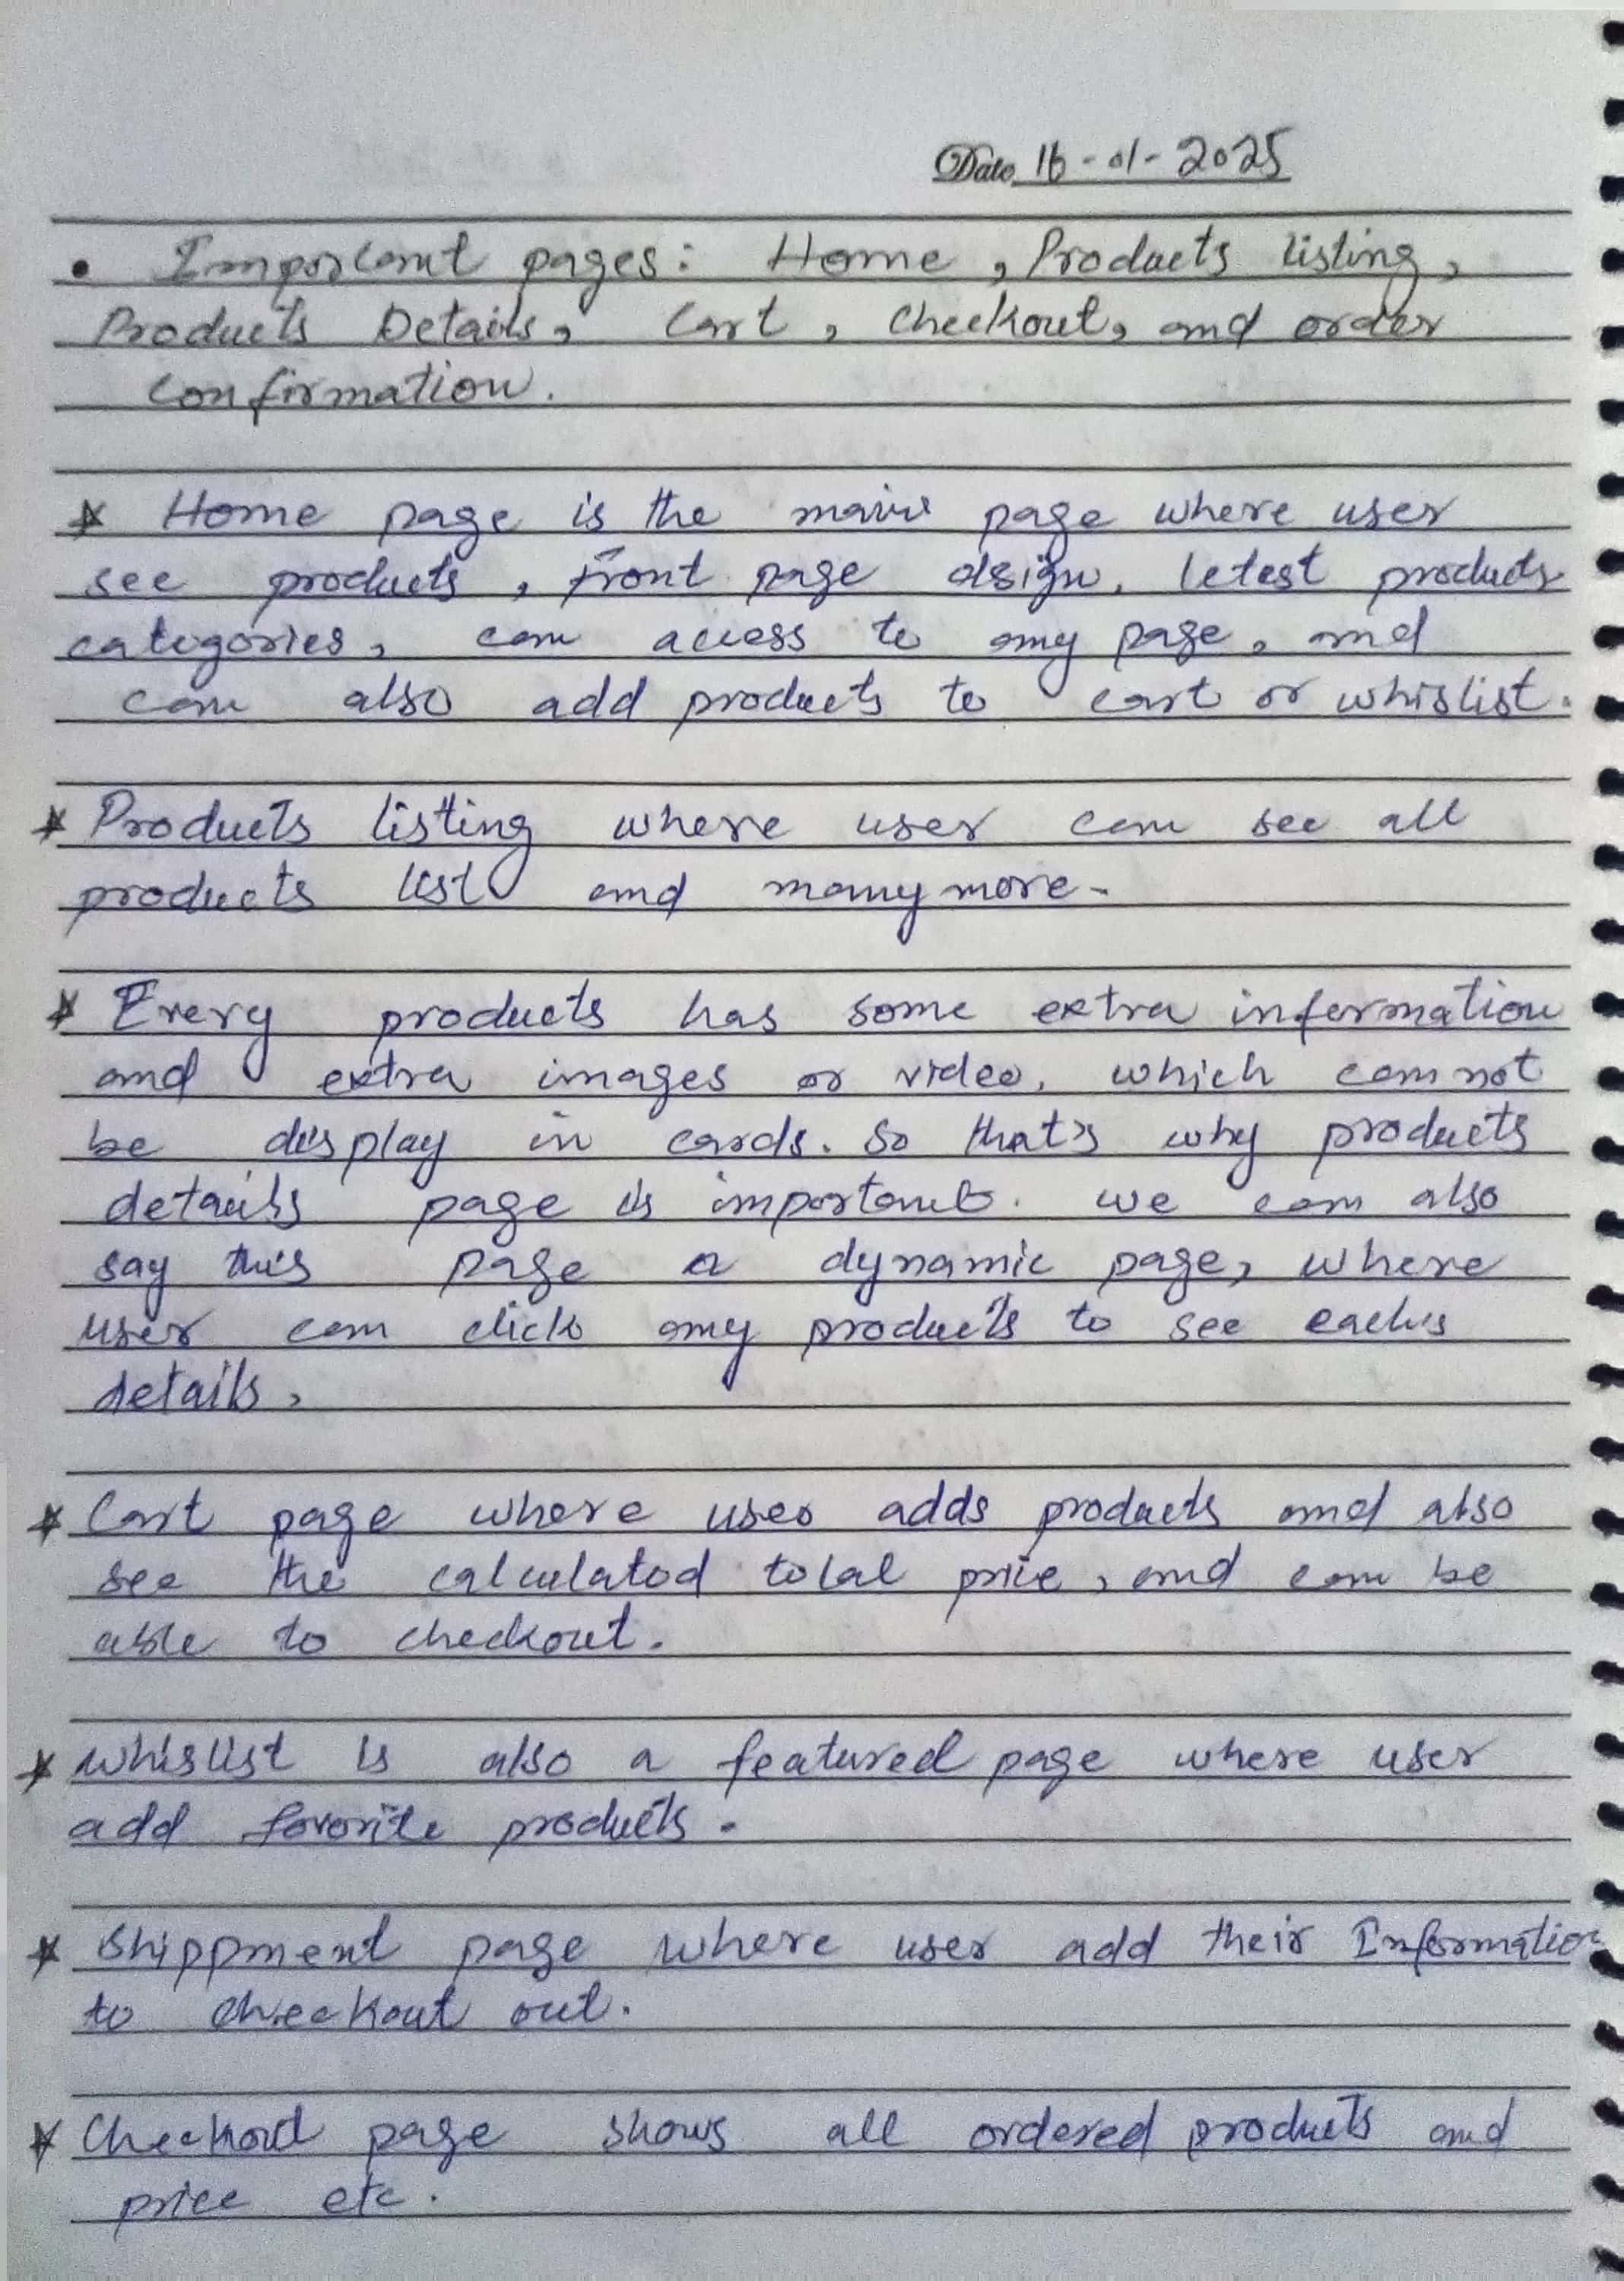 Date 16-01-2025
• Important pages: Home, Products listing,
Products Details, Cart, Checkout, and order
confirmation.
* Home page is the main page where user
see products, front page dsign, letest products
categories, can access to any page, and
can also add products to cart or whislist.
* Products listing where user can see all
products list and many more.
* Every products has some extra information
and extra images or video, which can not
be display in cards. So that's why products
details page is important. we can also
say this page a dynamic page, where
user can click any products to see each's
details,
* Cart page where user adds products and also
see the calculated total price, and can be
able to checkout.
* whislist is also a featured page where user
add favorite products.
* Shippment page where user add their Information
to checkout out.
* Checkout page shows all ordered products and
price etc.